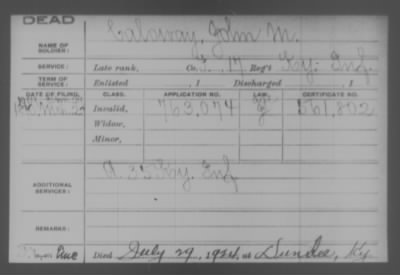 DEAD
NAME OF SOLDIER: Calaway, John M.
SERVICE: Late rank, Co. 17 Reg't Ky. Inf.
TERM OF SERVICE: Enlisted , 1 Discharged , 1
DATE OF FILING. CLASS. APPLICATION NO. LAW. CERTIFICATE NO.
Invalid, 763,074 561,802
Widow,
Minor,
ADDITIONAL SERVICES: A. 35 Ky. Inf
REMARKS:
Died July 29, 1924, at Dundee, Ky.